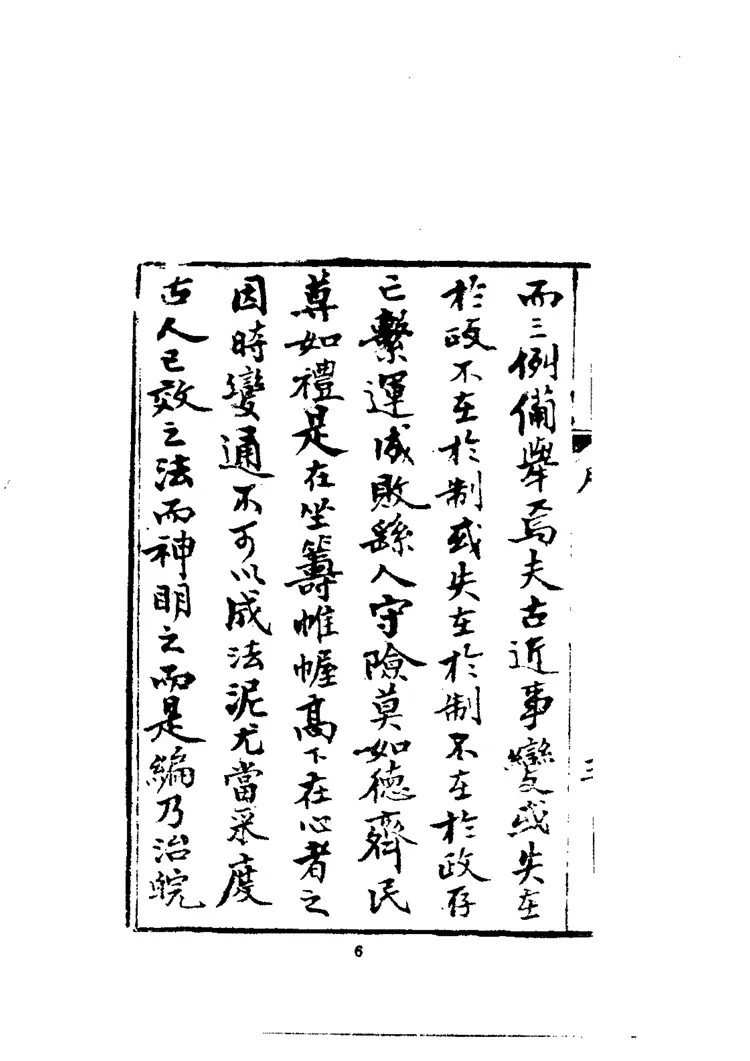 而三例備舉焉夫古近事變或失在
於政不在於制或失在於制不在於政存
亡繫運成敗繇人守險莫如德齊民
尊如禮是在坐籌帷幄高下在心者之
因時變通不可以成法泥尤當采度
古人已效之法而神明之而是編乃治皖
三
6